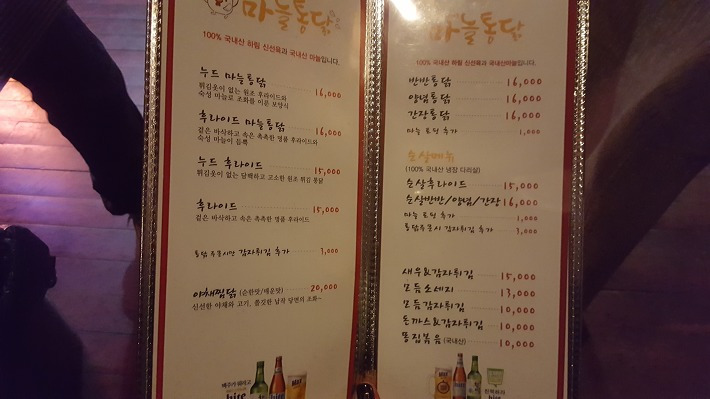 마늘통닭
100% 국내산 하림 신선육과 국내산 마늘입니다.
누드 마늘통닭 16,000
튀김옷이 없는 원조 후라이드와
숙성 마늘로 조화를 이룬 모양식
후라이드 마늘통닭 16,000
겉은 바삭하고 속은 촉촉한 명품 후라이드와
숙성 마늘이 듬뿍
누드 후라이드 15,000
튀김옷이 없는 담백하고 고소한 원조 튀김 통닭
후라이드 15,000
겉은 바삭하고 속은 촉촉한 명품 후라이드
통닭주문시만 감자튀김 추가 3,000
야채찜닭 (순한맛/매운맛) 20,000
신선한 야채와 고기, 쫄깃한 납작 당면의 조화~
맥주가 맥이고
hite
마늘통닭
100% 국내산 하림 신선육과 국내산마늘입니다.
반반통닭 16,000
양념통닭 16,000
간장통닭 16,000
마늘 토핑 추가 1,000
순살메뉴
(100% 국내산 냉장 다리살)
순살후라이드 15,000
순살반반/양념/간장 16,000
마늘 토핑 추가 1,000
통닭주문시 감자튀김 추가 3,000
새우&감자튀김 15,000
모듬소세지 13,000
모듬감자튀김 10,000
돈까스&감자튀김 10,000
똥집볶음 (국내산) 10,000
hite